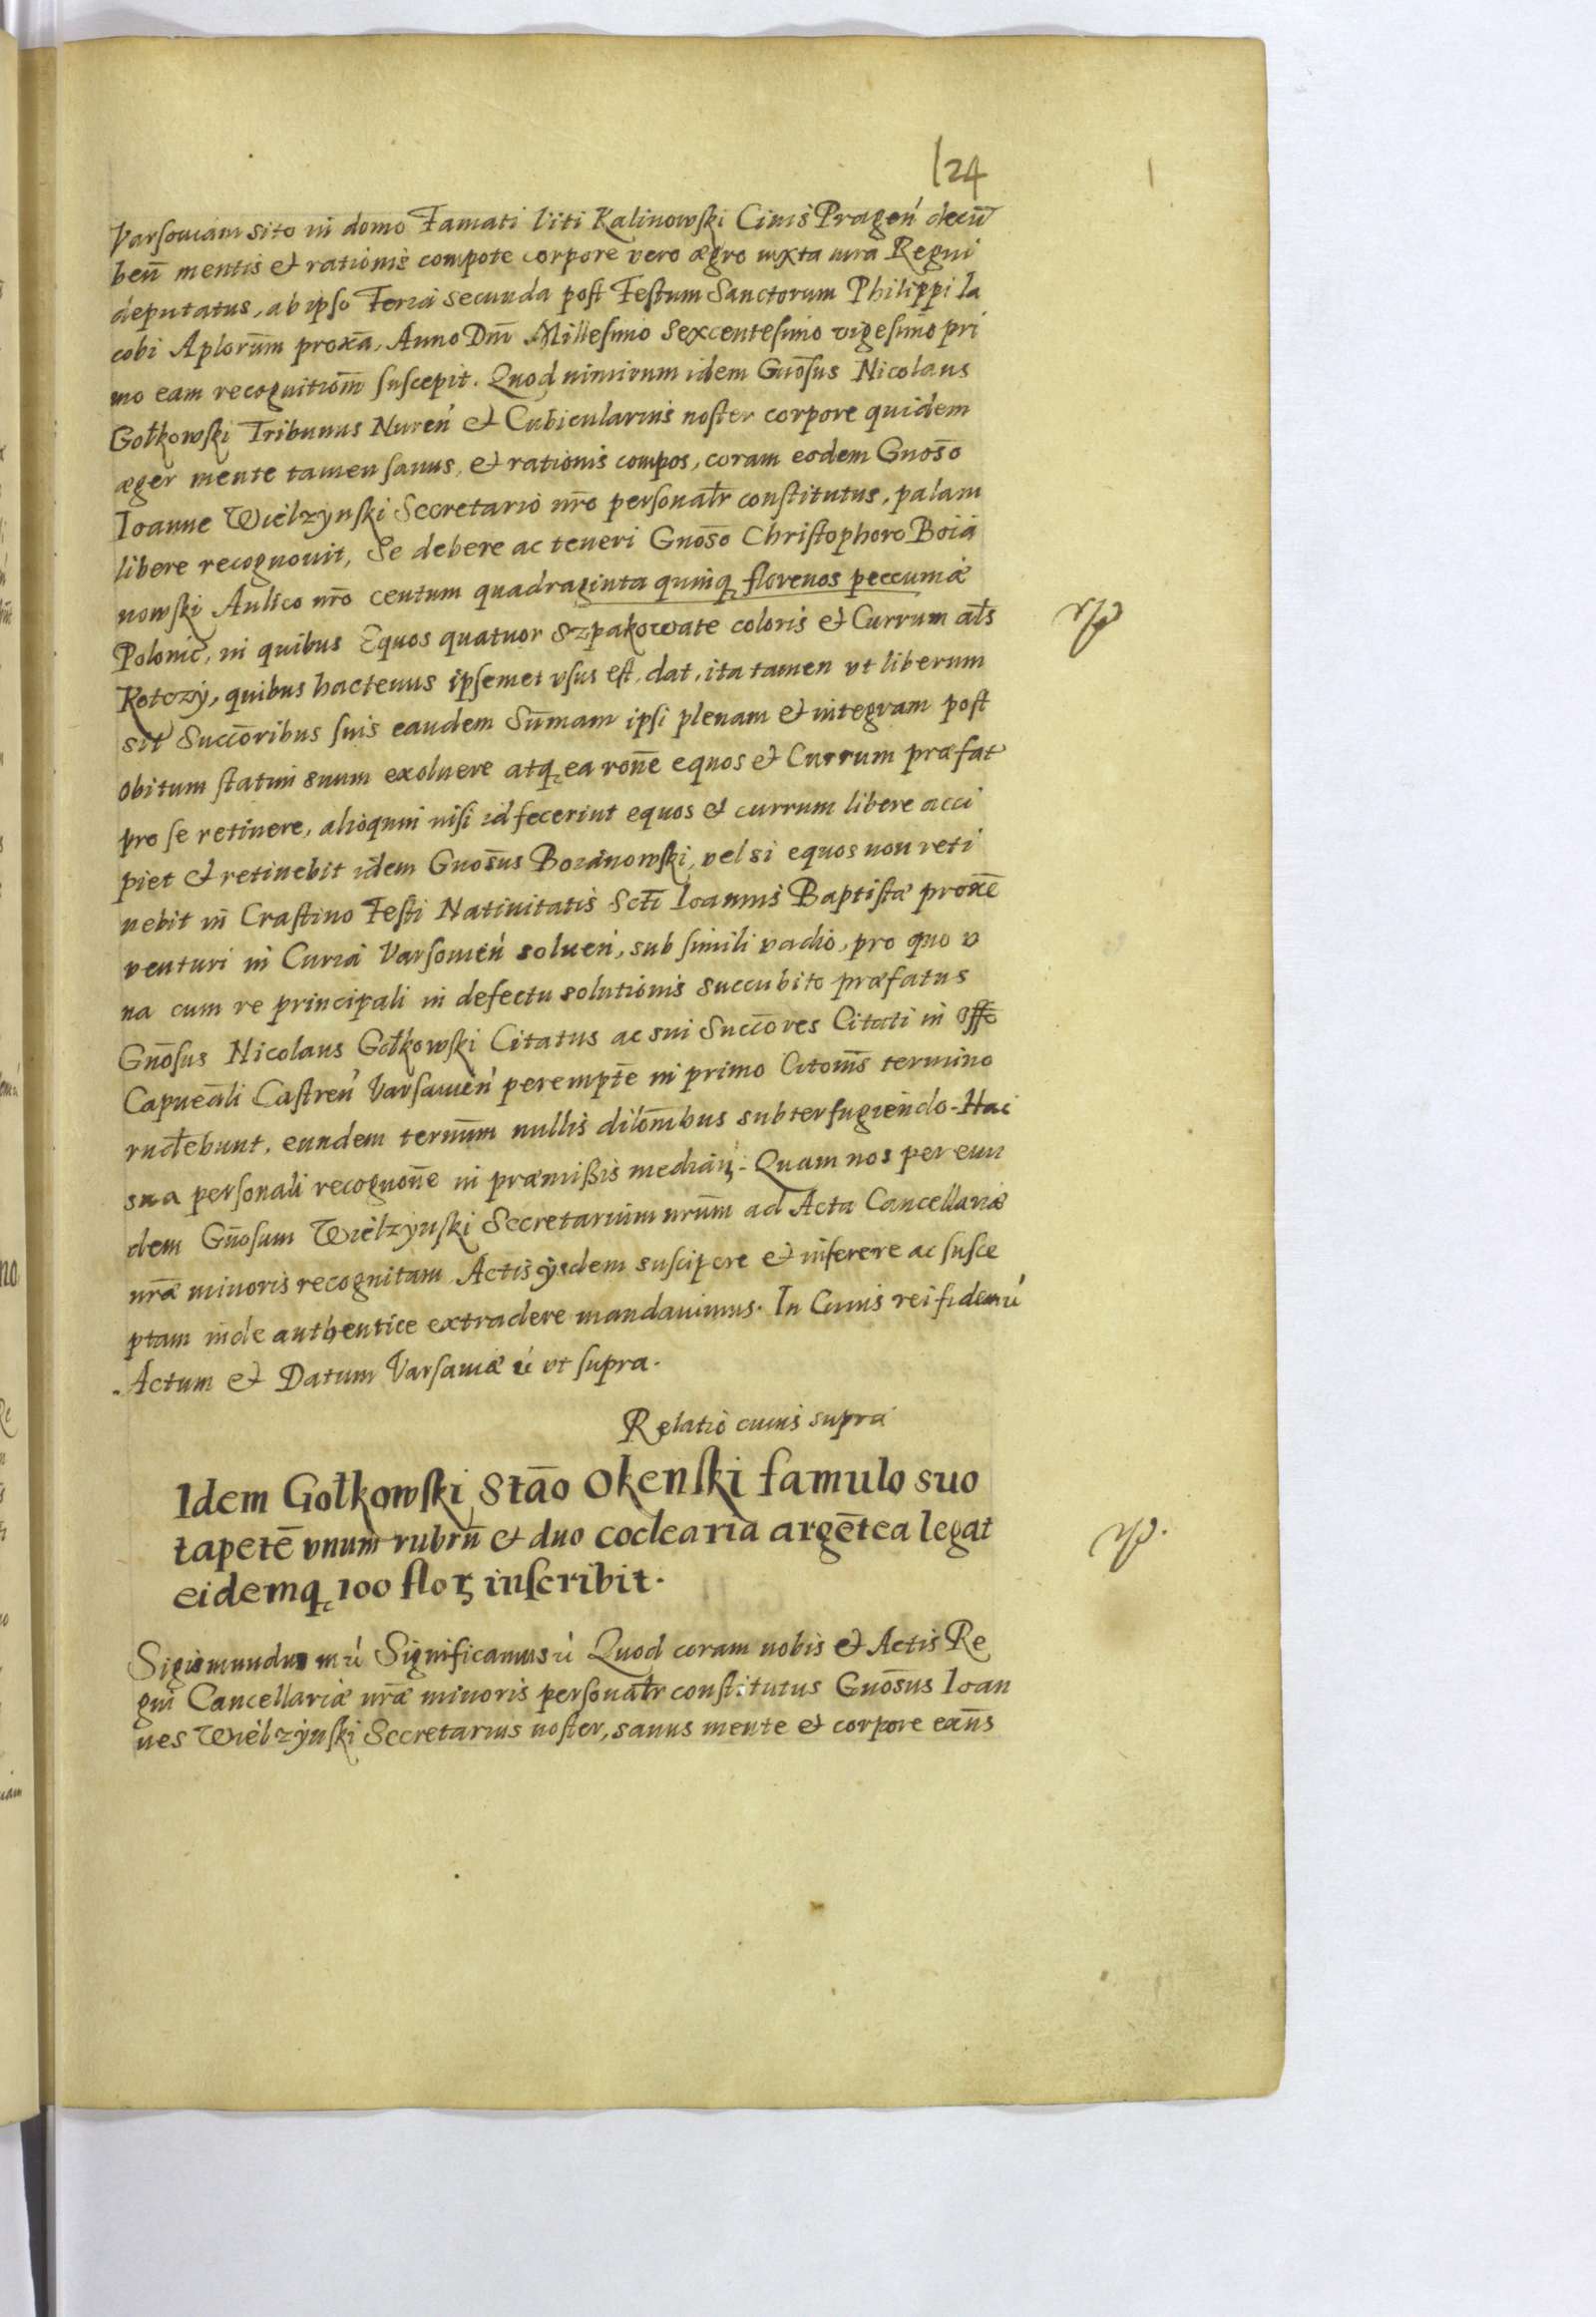 124
Varsoviam sito in domo Famati Viti Kalinowski Civis Pragen̄ decū
ben̄ mentis et rationis compote corpore vero ægro iuxta iura Regni
deputatus, ab ipso Feria secunda post Festum Sanctorum Philippi Ia
cobi Aplorūm proxā, Anno Dnī Millesimo Sexcentesimo vigesimo pri
mo eam recognitionē suscepit. Quod nimirum idem Gnōsus Nicolaus
Gołkowski Tribunus Nuren̄ et Cubicularius noster corpore quidem
æger mente tamen sanus, et rationis compos, coram eodem Gnōso
Ioanne Wielzynski Secretario nrō personalr̄ constitutus, palam
libere recognovit, Se debere ac teneri Gnōso Christophoro Boia
nowski Aulico nrō centum quadraginta quinq florenos peccuniæ
Polonic̄, in quibus Equos quatuor Szpakowate coloris et Currum als̄
Kotczy, quibus hactenus ipsemet usus est, dat, ita tamen ut liberum
sit Succōribus suis eandem Sūmam ipsi plenam et integram post
obitum statim suum exolvere atq ea ronē equos et Currum præfat
pro se retinere, alioquin nisi id fecerint equos et currum libere acci
piet et retinebit idem Gnōsus Boianowski, vel si equos non reti
nebit in Crastino Festi Nativitatis Sctī Ioannis Baptistæ proxē
venturi in Curia Varsovien̄ solven̄, sub simili vadio, pro quo v
na cum re principali in defectu solutionis succubito præfatus
Gnōsus Nicolaus Gołkowski Citatus ac sui Succōres Citati in Offō
Capneāli Castren̄ Varsavien̄ peremptē in primo Citonīs termino
rndebunt, eundem termīnūm nullis dilōnibus subterfugiendo. Hac
sua personali recognonē in præmissis median̄. Quam nos per eun
dem Gnōsum Wielzynski Secretarium nrūm ad Acta Cancellariæ
nrǣ minoris recognitam Actis ijsdem suscipere et inserere ac susce
ptam inde authentice extradere mandavimus. In Cuius rei fidem ú
Actum et Datum Varsaviæ ú ut supra.
Relatio cuius supra
Idem Gołkowski Stāo Okenski famulo suo
tapetē vnum rubrū et duo coclearia argētea legat
eidemq 100 flor inscribit.
Sigismundus mú Significamus ú Quod coram nobis et Actis Re
gni Cancellariæ nrǣ minoris personalr̄ constitutus Gnōsus Ioan
nes Wielzynski Secretarius noster, sanus mente et corpore exns̄